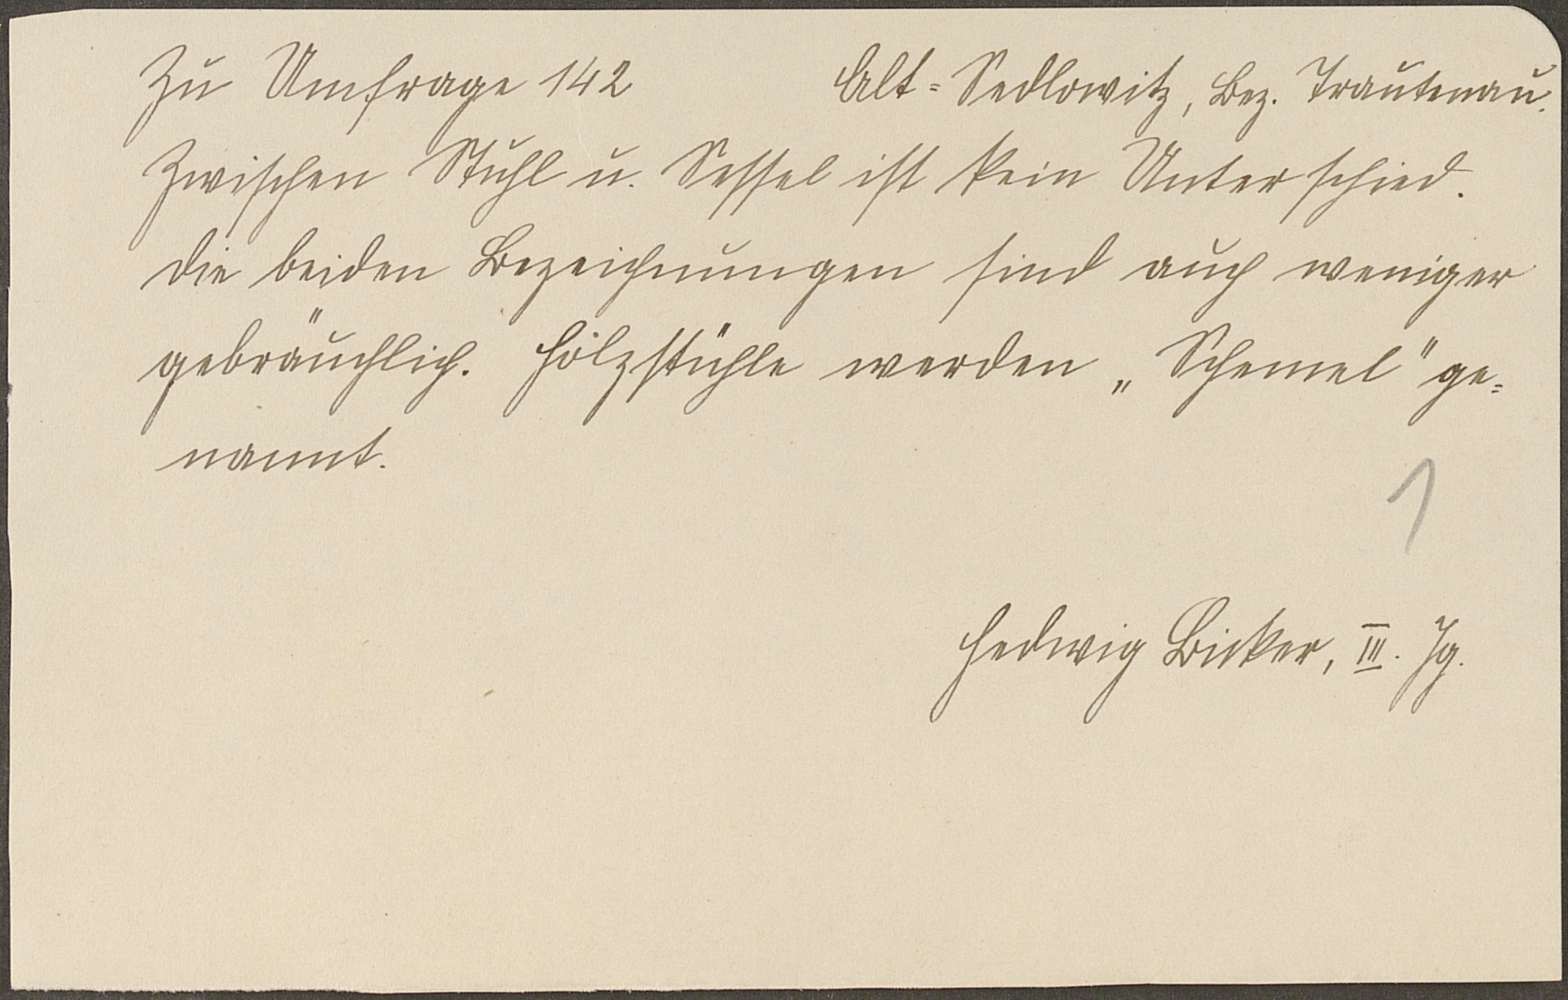 Zu Umfrage 142 Alt-Sedlowitz, Bez. Trautenau.
Zwischen Stuhl u. Sessel ist kein Unterschied.
Die beiden Bezeichnungen sind auch weniger
gebräuchlich. Holzstühle werden „Schemel" ge-
nannt.
1
Hedwig Bicker, III. Jg.